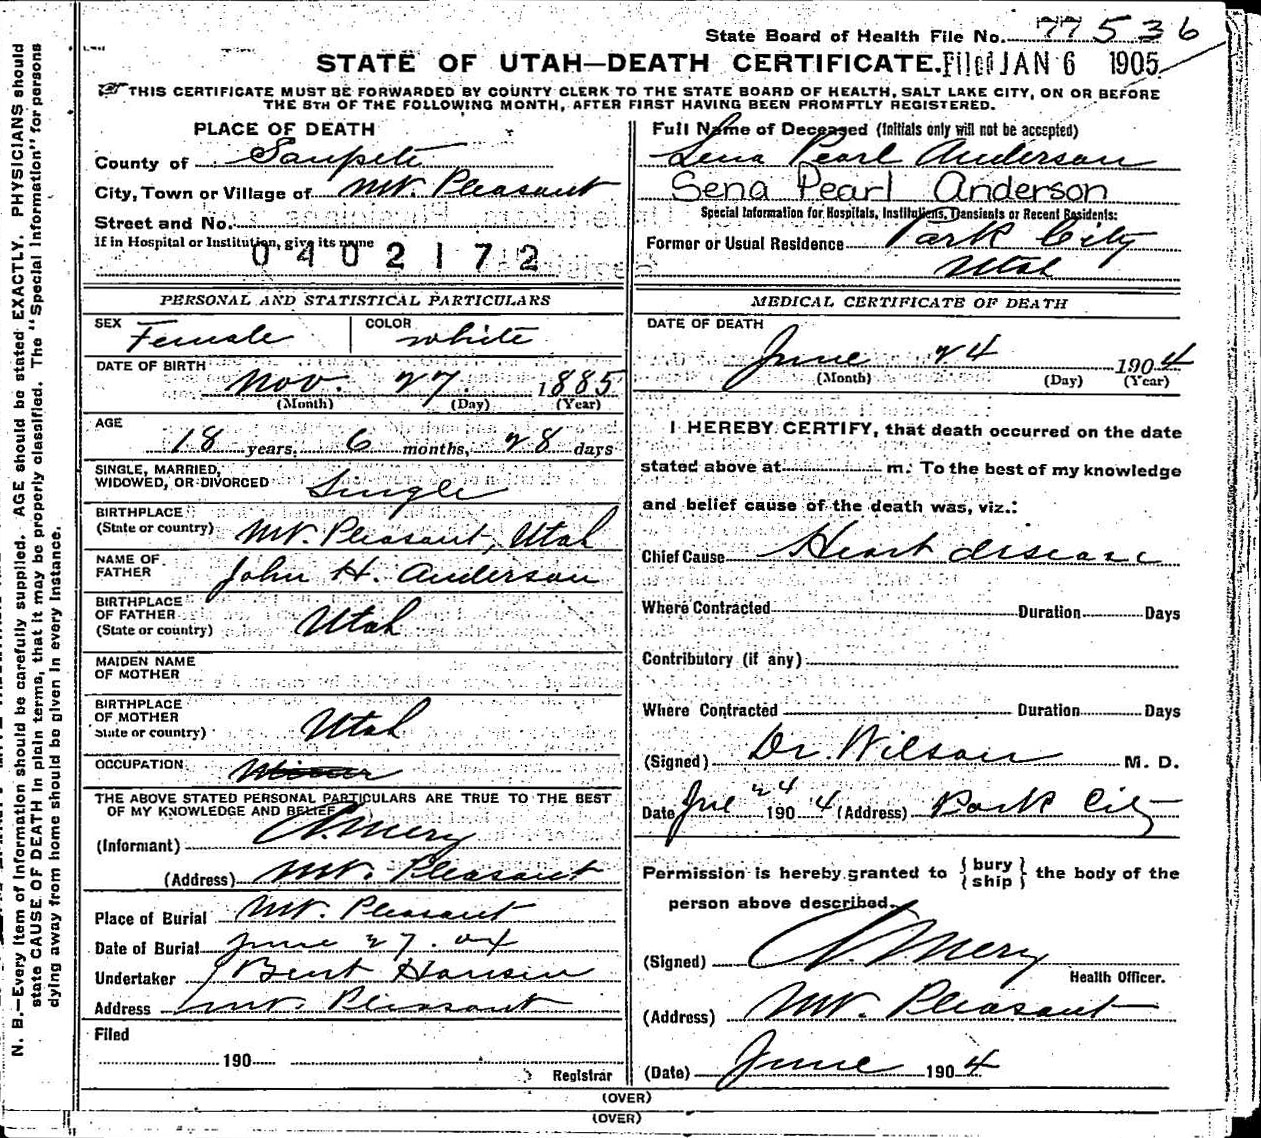 State Board of Health File No. 77536
STATE OF UTAH—DEATH CERTIFICATE. Filed JAN 6 1905
THIS CERTIFICATE MUST BE FORWARDED BY COUNTY CLERK TO THE STATE BOARD OF HEALTH, SALT LAKE CITY, ON OR BEFORE
THE 5TH OF THE FOLLOWING MONTH, AFTER FIRST HAVING BEEN PROMPTLY REGISTERED.
N. B.—Every item of information should be carefully supplied. AGE should be stated EXACTLY. PHYSICIANS should
state CAUSE OF DEATH in plain terms, that it may be properly classified. The "Special Information" for persons
dying away from home should be given in every instance.
PLACE OF DEATH
County of Sanpete
City, Town or Village of Mt. Pleasant
Street and No.
If in Hospital or Institution, give its name
0402172
PERSONAL AND STATISTICAL PARTICULARS
SEX Female COLOR white
DATE OF BIRTH Nov. 27 1885
(Month) (Day) (Year)
AGE 18 years, 6 months, 28 days
SINGLE, MARRIED,
WIDOWED, OR DIVORCED Single
BIRTHPLACE
(State or country) Mt. Pleasant, Utah
NAME OF
FATHER John H. Anderson
BIRTHPLACE
OF FATHER
(State or country) Utah
MAIDEN NAME
OF MOTHER
BIRTHPLACE
OF MOTHER
State or country) Utah
OCCUPATION
THE ABOVE STATED PERSONAL PARTICULARS ARE TRUE TO THE BEST
OF MY KNOWLEDGE AND BELIEF
(Informant) Mery
(Address) Mt. Pleasant
Place of Burial Mt. Pleasant
Date of Burial June 27. 04
Undertaker Bent Hansen
Address Mt. Pleasant
Filed
190
Registrar
Full Name of Deceased (Initials only will not be accepted)
Sena Pearl Anderson
Sena Pearl Anderson
Special Information for Hospitals, Institutions, Transients or Recent Residents:
Former or Usual Residence Park City
Utah
MEDICAL CERTIFICATE OF DEATH
DATE OF DEATH
June 24 1904
(Month) (Day) (Year)
I HEREBY CERTIFY, that death occurred on the date
stated above at m. To the best of my knowledge
and belief cause of the death was, viz.:
Chief Cause Heart disease
Where Contracted Duration Days
Contributory (if any)
Where Contracted Duration Days
(Signed) Dr. Wilson M. D.
Date Jue 24 1904 (Address) Park City
Permission is hereby granted to { bury } the body of the
{ ship }
person above described.
(Signed) Mery
Health Officer.
(Address) Mt. Pleasant
(Date) June 1904
(OVER)
(OVER)